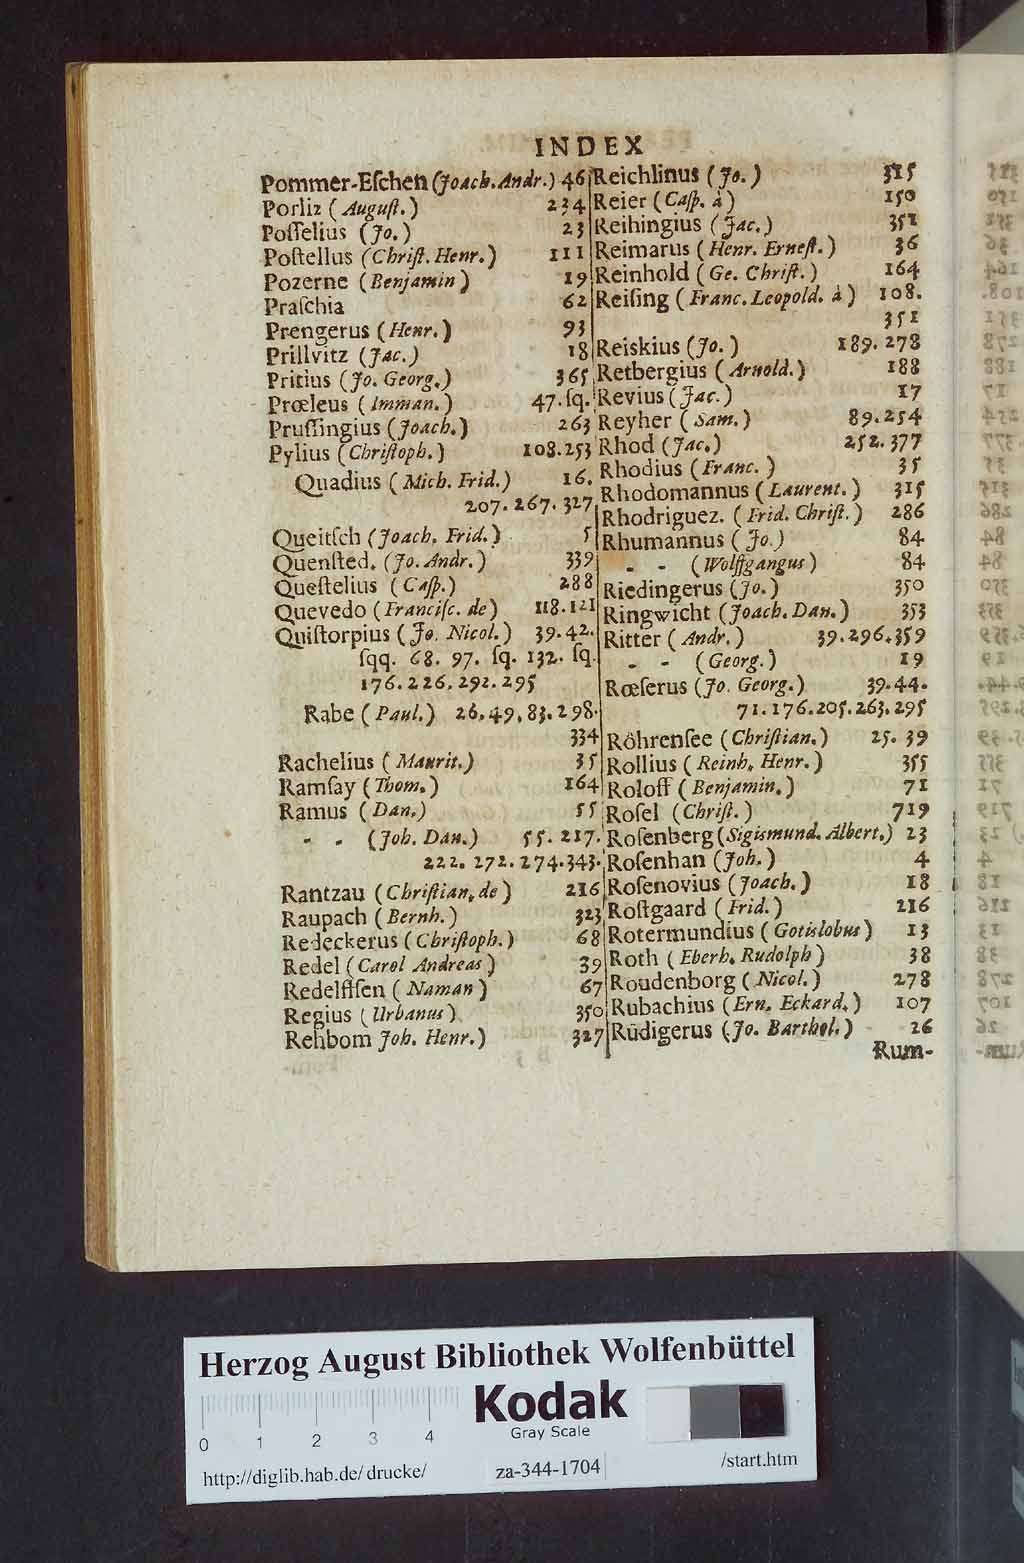 INDEX
Pommer-Eſchen (Joach. Andr.) 46
Porliz (Auguſt.) 234
Poſſelius (Jo.) 23
Poſtellus (Chriſt. Henr.) 111
Pozerne (Benjamin) 19
Praſchia 62
Prengerus (Henr.) 93
Prillvitz (Jac.) 18
Pritius (Jo. Georg.) 365
Prœleus (Imman.) 47. ſq.
Pruſſingius (Joach.) 263
Pylius (Chriſtoph.) 108. 253
Quadius (Mich. Frid.) 16.
207. 267. 327
Queitſch (Joach. Frid.) 5
Quenſted. (Jo. Andr.) 339
Queſtelius (Caſp.) 288
Quevedo (Franciſc. de) 118. 121
Quiſtorpius (Jo. Nicol.) 39. 42.
ſqq. 68. 97. ſq. 132. ſq.
176. 226. 292. 295
Rabe (Paul.) 26. 49. 83. 298.
334
Rachelius (Maurit.) 35
Ramſay (Thom.) 164
Ramus (Dan.) 55
- - (Joh. Dan.) 55. 217.
222. 272. 274. 343.
Rantzau (Chriſtian. de) 216
Raupach (Bernh.) 323
Redeckerus (Chriſtoph.) 68
Redel (Carol Andreas) 39
Redelffſen (Naman) 67
Regius (Urbanus) 350
Rehbom Joh. Henr.) 327
Reichlinus (Jo.) 315
Reier (Caſp. à) 150
Reihingius (Jac.) 351
Reimarus (Henr. Erneſt.) 36
Reinhold (Ge. Chriſt.) 164
Reiſing (Franc. Leopold. à) 108.
351
Reiskius (Jo.) 189. 278
Retbergius (Arnold.) 188
Revius (Jac.) 17
Reyher (Sam.) 89. 254
Rhod (Jac.) 252. 377
Rhodius (Franc.) 35
Rhodomannus (Laurent.) 315
Rhodriguez. (Frid. Chriſt.) 286
Rhumannus (Jo.) 84
- - (Wolffgangus) 84
Riedingerus (Jo.) 350
Ringwicht (Joach. Dan.) 353
Ritter (Andr.) 39. 296. 359
- - (Georg.) 19
Rœſerus (Jo. Georg.) 39. 44.
71. 176. 205. 263. 295
Röhrenſee (Chriſtian.) 25. 39
Rollius (Reinh. Henr.) 355
Roloff (Benjamin.) 71
Roſel (Chriſt.) 719
Roſenberg (Sigismund. Albert.) 23
Roſenhan (Joh.) 4
Roſenovius (Joach.) 18
Roſtgaard (Frid.) 216
Rotermundius (Gotislobus) 13
Roth (Eberh. Rudolph) 38
Roudenborg (Nicol.) 278
Rubachius (Ern. Eckard.) 107
Rüdigerus (Jo. Barthol.) 26
Rum-
Herzog August Bibliothek Wolfenbüttel
Kodak
Gray Scale
0 1 2 3 4
http://diglib.hab.de/drucke/ za-344-1704 /start.htm